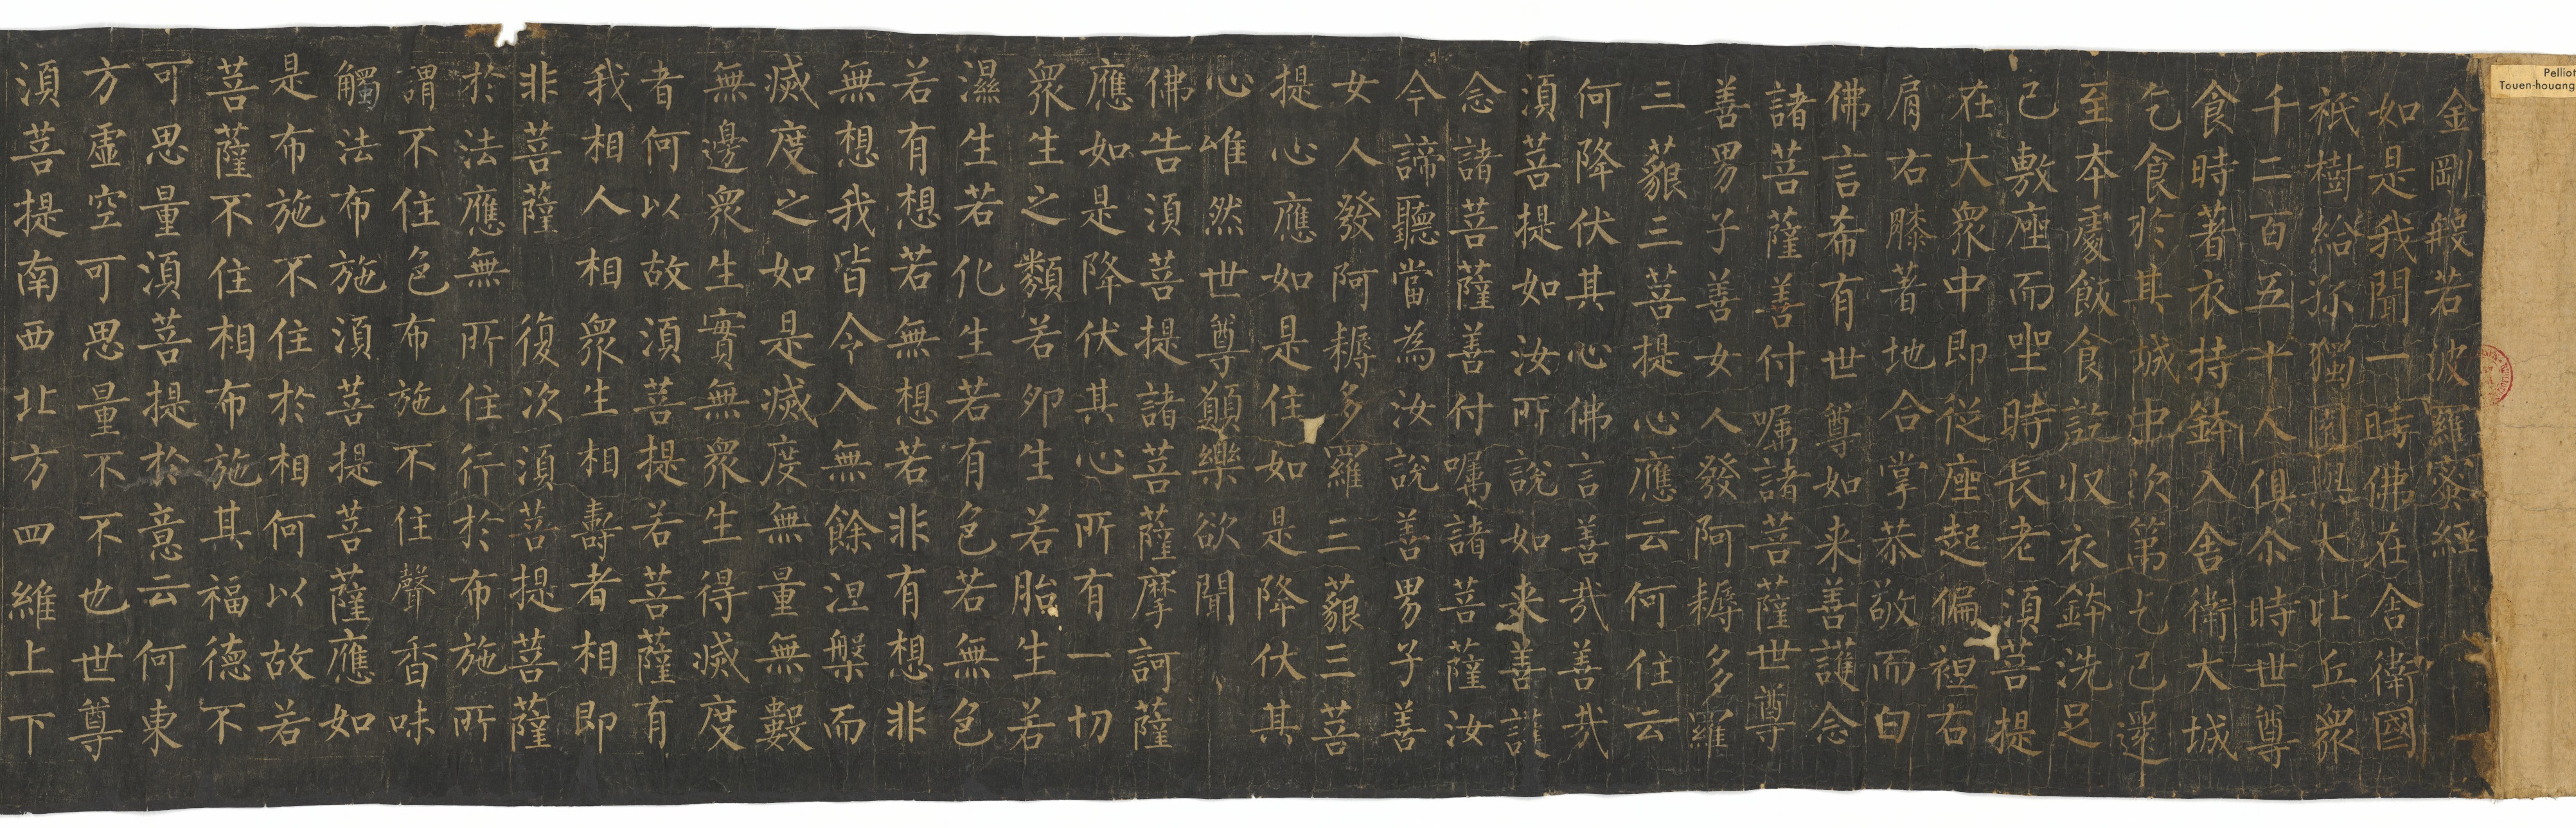 金剛般若波羅蜜經
如是我聞一時佛在舍衛國
祇樹給孤獨園與大比丘衆
千二百五十人俱尒時世尊
食時著衣持鉢入舍衛大城
乞食於其城中次第乞已還
至本處飯食訖収衣鉢洗足
已敷座而坐時長老湏菩提
在大衆中即從座起偏袒右
肩右膝著地合掌恭敬而白
佛言希有世尊如来善護念
諸菩薩善付囑諸菩薩世尊
善男子善女人發阿耨多羅
三藐三菩提心應云何住云
何降伏其心佛言善哉善哉
湏菩提如汝所說如来善護
念諸菩薩善付囑諸菩薩汝
今諦聽當為汝說善男子善
女人發阿耨多羅三藐三菩
提心應如是住如是降伏其
心唯然世尊願樂欲聞
佛告湏菩提諸菩薩摩訶薩
應如是降伏其心所有一切
衆生之類若卵生若胎生若
濕生若化生若有色若無色
若有想若無想若非有想非
無想我皆令入無餘涅槃而
滅度之如是滅度無量無數
無邊衆生實無衆生得滅度
者何以故湏菩提若菩薩有
我相人相衆生相壽者相即
非菩薩 復次湏菩提菩薩
於法應無所住行於布施所
謂不住色布施不住聲香味
觸法布施湏菩提菩薩應如
是布施不住於相何以故若
菩薩不住相布施其福德不
可思量湏菩提於意云何東
方虛空可思量不不也世尊
湏菩提南西北方四維上下
Pelliot
Touen-houang